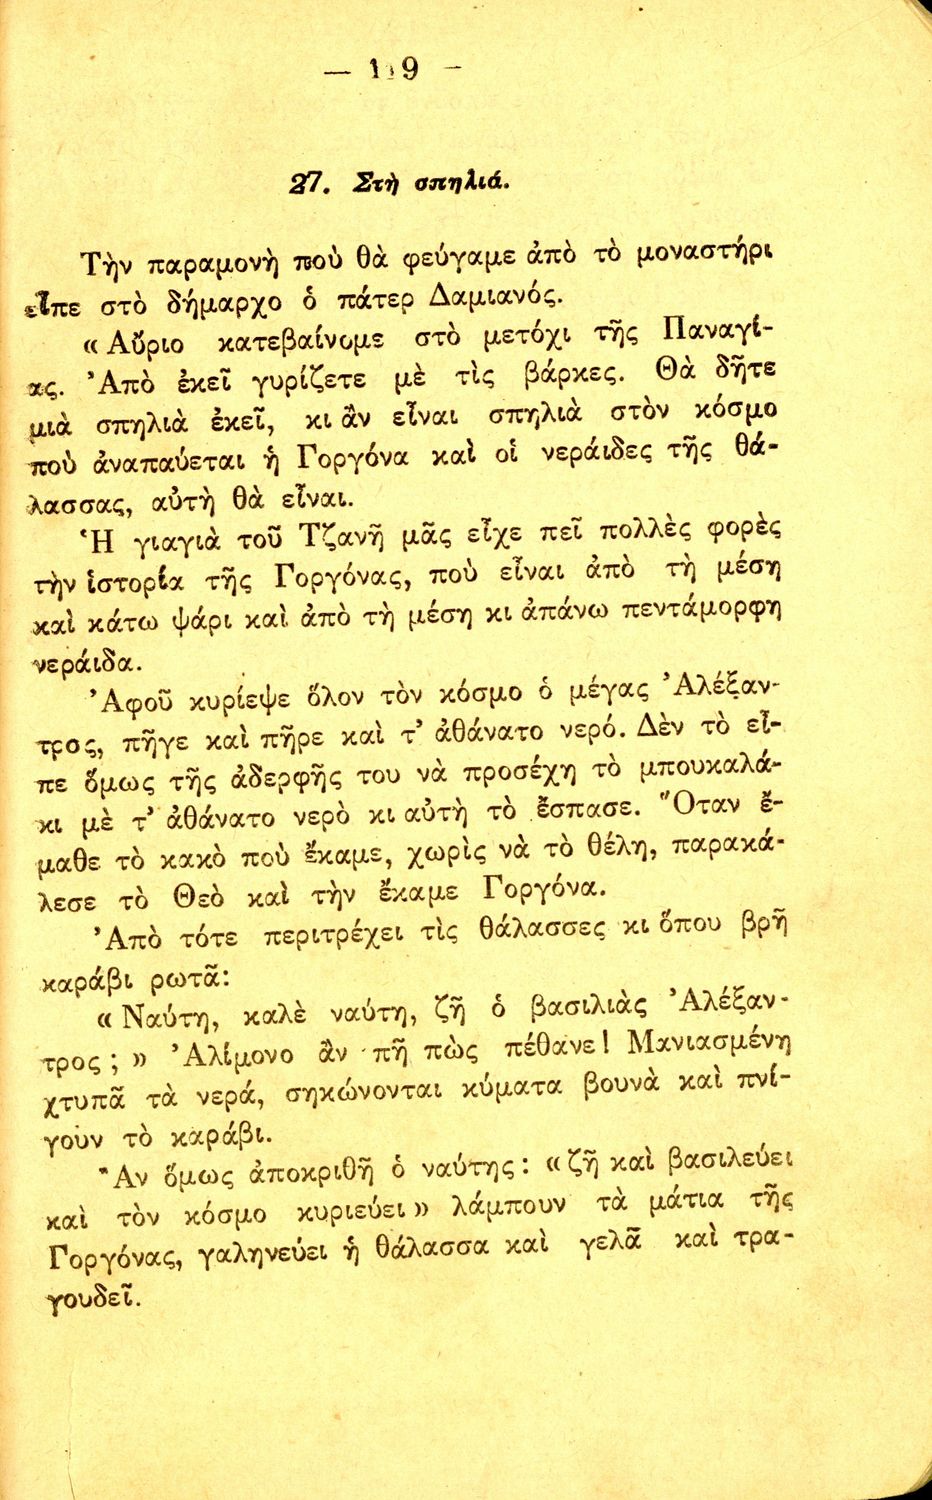 — 119 —
27. Στὴ σπηλιά.
Τὴν παραμονὴ ποὺ θὰ φεύγαμε ἀπὸ τὸ μοναστήρι
εἶπε στὸ δήμαρχο ὁ πάτερ Δαμιανός.
« Αὔριο κατεβαίνομε στὸ μετόχι τῆς Παναγί-
ας. Ἀπὸ ἐκεῖ γυρίζετε μὲ τὶς βάρκες. Θὰ δῆτε
μιὰ σπηλιὰ ἐκεῖ, κι ἂν εἶναι σπηλιὰ στὸν κόσμο
ποὺ ἀναπαύεται ἡ Γοργόνα καὶ οἱ νεράιδες τῆς θά-
λασσας, αὐτὴ θὰ εἶναι.
Ἡ γιαγιὰ τοῦ Τζανῆ μᾶς εἶχε πεῖ πολλὲς φορὲς
τὴν ἱστορία τῆς Γοργόνας, ποὺ εἶναι ἀπὸ τὴ μέση
καὶ κάτω ψάρι καὶ ἀπὸ τὴ μέση κι ἀπάνω πεντάμορφη
νεράιδα.
Ἀφοῦ κυρίεψε ὅλον τὸν κόσμο ὁ μέγας Ἀλέξαν-
τρος, πῆγε καὶ πῆρε καὶ τ' ἀθάνατο νερό. Δὲν τὸ εἶ-
πε ὅμως τῆς ἀδερφῆς του νὰ προσέχη τὸ μπουκαλά-
κι μὲ τ' ἀθάνατο νερὸ κι αὐτὴ τὸ ἔσπασε. Ὅταν ἔ-
μαθε τὸ κακὸ ποὺ ἔκαμε, χωρὶς νὰ τὸ θέλη, παρακά-
λεσε τὸ Θεὸ καὶ τὴν ἔκαμε Γοργόνα.
Ἀπὸ τότε περιτρέχει τὶς θάλασσες κι ὅπου βρῆ
καράβι ρωτᾶ:
« Ναύτη, καλὲ ναύτη, ζῆ ὁ βασιλιὰς Ἀλέξαν-
τρος ; » Ἀλίμονο ἂν πῆ πὼς πέθανε! Μανιασμένη
χτυπᾶ τὰ νερά, σηκώνονται κύματα βουνὰ καὶ πνί-
γουν τὸ καράβι.
Ἂν ὅμως ἀποκριθῆ ὁ ναύτης : « ζῆ καὶ βασιλεύει
καὶ τὸν κόσμο κυριεύει » λάμπουν τὰ μάτια τῆς
Γοργόνας, γαληνεύει ἡ θάλασσα καὶ γελᾶ καὶ τρα-
γουδεῖ.